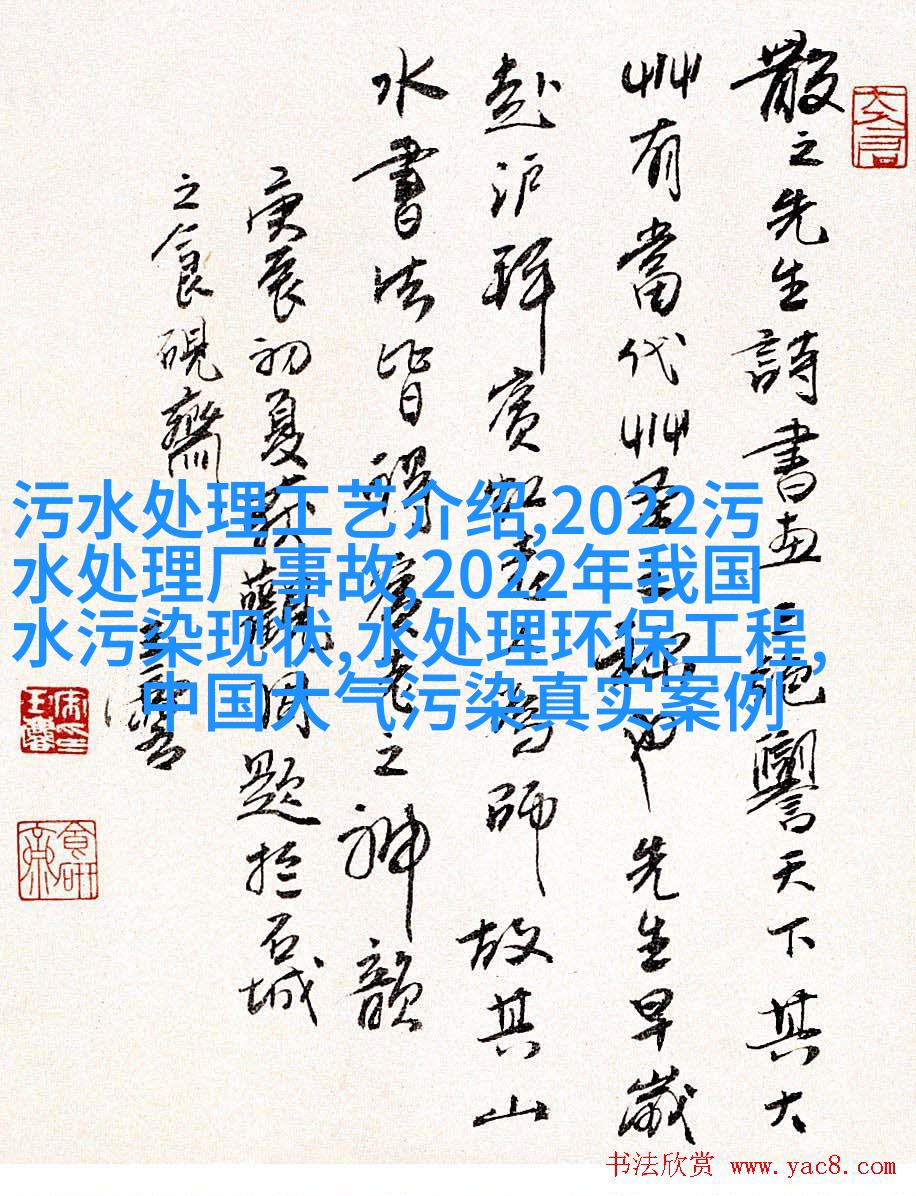 散之先生詩書畫三絕譽天下其大
艸有當代艸聖之稱也先生早歲
赴沪拜賓虹老人為師故其山
水書法皆得賓老之神韻
庚辰初夏敬觀因題於石城
之食硯齋
污水处理工艺介绍,2022污
水处理厂事故,2022年我国
水污染现状,水处理环保工程,
中国大气污染真实案例
书法欣赏 www.yac8.com